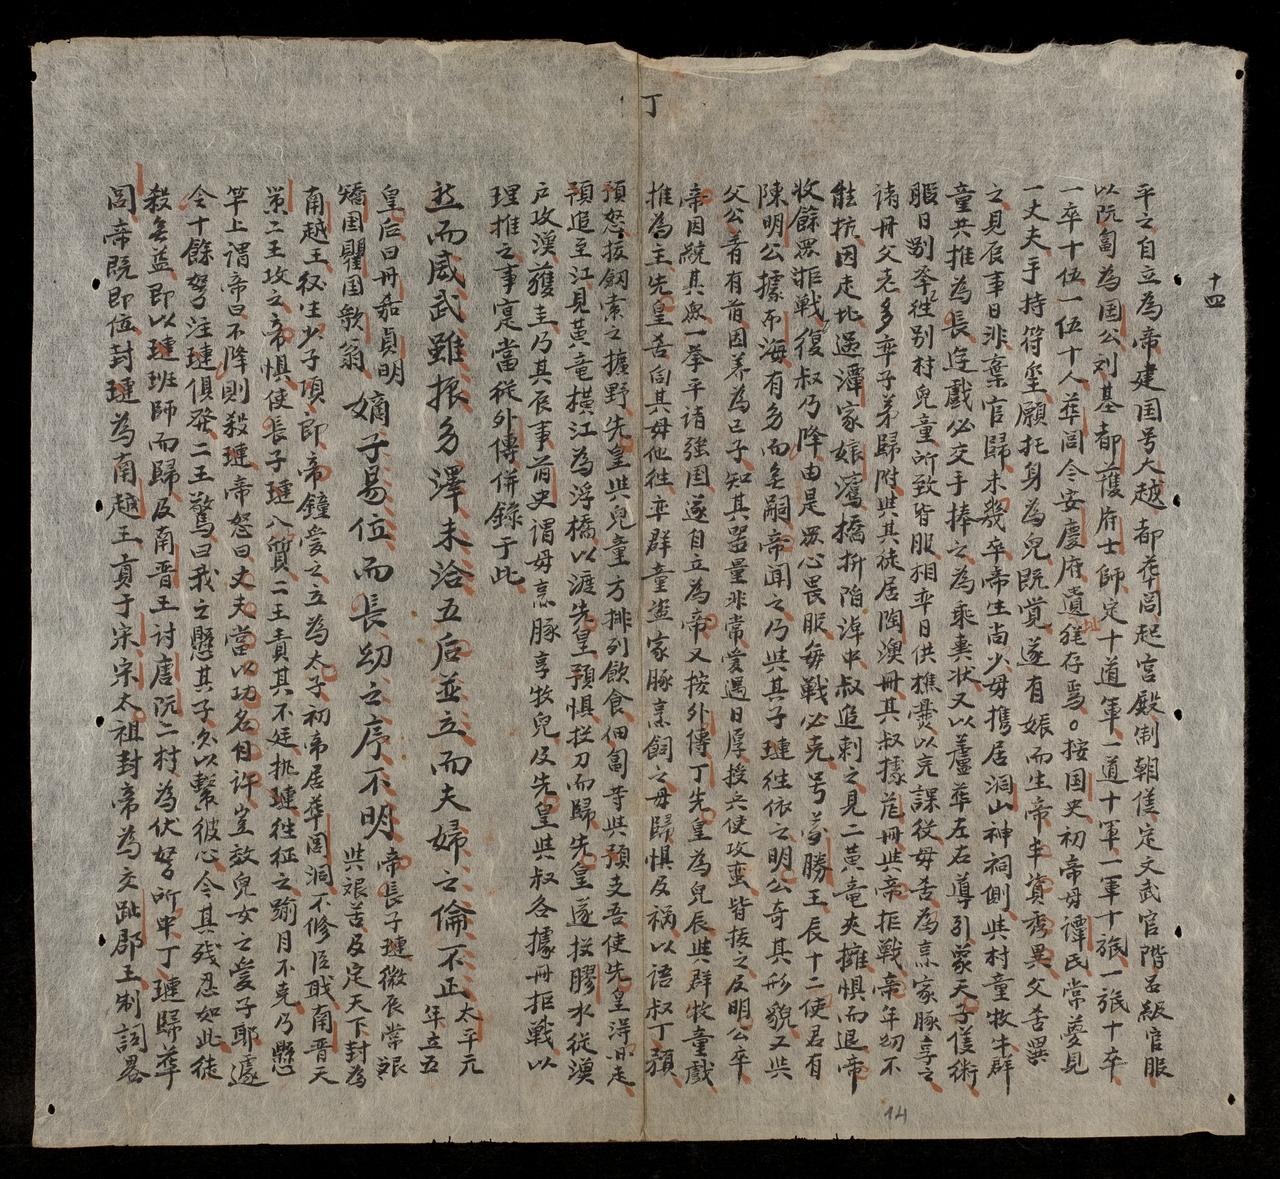 丁
十四
平之自立為帝建国号大越都華閭起宮殿制朝儀定文武官階品級官服
以阮匐為国公刘基都護府士師定十道軍一道十軍一軍十旅一旅十卒
一卒十伍一伍十人華閭今安慶府遺址存焉○按国史初帝母譚氏常夢見
一丈夫手持符璽願托身為兒既覚遂有娠而生帝丰資秀異父沒異
之見辰事日非棄官歸未幾卒帝生尚少母携居洞山神祠側共村童牧牛群
童共推為長逰戲必交手捧之為乘輿状又以蘆華左右導引象天子儀術
暇日別率徃別村兒童所致皆服相率日供樵爨以充課役母喜為烹家豚享之
諸冊父老多率子弟歸附與其徒居陶澳冊其叔據芃冊與帝拒戰帝年幼不
能抗因走北過潭家娘湾橋折陷淖中叔追刺之見二黃竜夾擁懼而退帝
收餘眾拒戰復叔乃降由是眾心畏服每戰必克号萬勝王辰十二使君有
陳明公據布海有勇而無嗣帝聞之乃與其子璉徃依之明公奇其形貌又與
父公著有前因养為己子知其噐量非常愛遇日厚授兵使攻蛮皆拔之及明公卒
帝因統其眾一举平諸強国遂自立為帝又按外傳丁先皇為兒辰與群牧童戲
推為主先皇舌向其母他徃率群童盜家豚烹飼之母歸惧及禍以语叔丁預
預怒拔劔索之攎野先皇與兒童方排列飲食佃匐等與預支吾使先皇淂以走
預追至江見黃竜横江為浮橋以渡先皇預惧拦刀而歸先皇遂投膠水従漁
户攻漢獲圭乃其辰事前史谓母烹豚享牧兒及先皇與叔各據冊拒戰以
理推之事寔當従外傳併錄于此
然而威武雖振多澤未洽五后並立而夫婦之倫不正太平元年立五
皇后曰丹嘉貞明矯国瞿国歌翁嫡子昜位而長幼之序不明帝長子璉微辰常艰與艰苦及定天下封為
南越王後生少子項郎帝鐘愛之立為太子初帝居華閭洞不修臣職南晋天
策二王攻之帝惧使長子璉入質二王責其不廷执璉徃征之踰月不克乃懸
竿上謂帝曰不降則殺璉帝怒曰丈夫當以功名自许豈效兒女之愛子耶遽
令十餘弩注璉俱發二王驚曰我之懸其子欲以繫彼心今其残忍如此徒
殺無益即以璉班師而歸及南晋王討唐阮二村為伏弩所中丁璉歸華
閭帝既即位封璉為南越王貢于宋宋太祖封帝為交趾郡王制詞畧
14